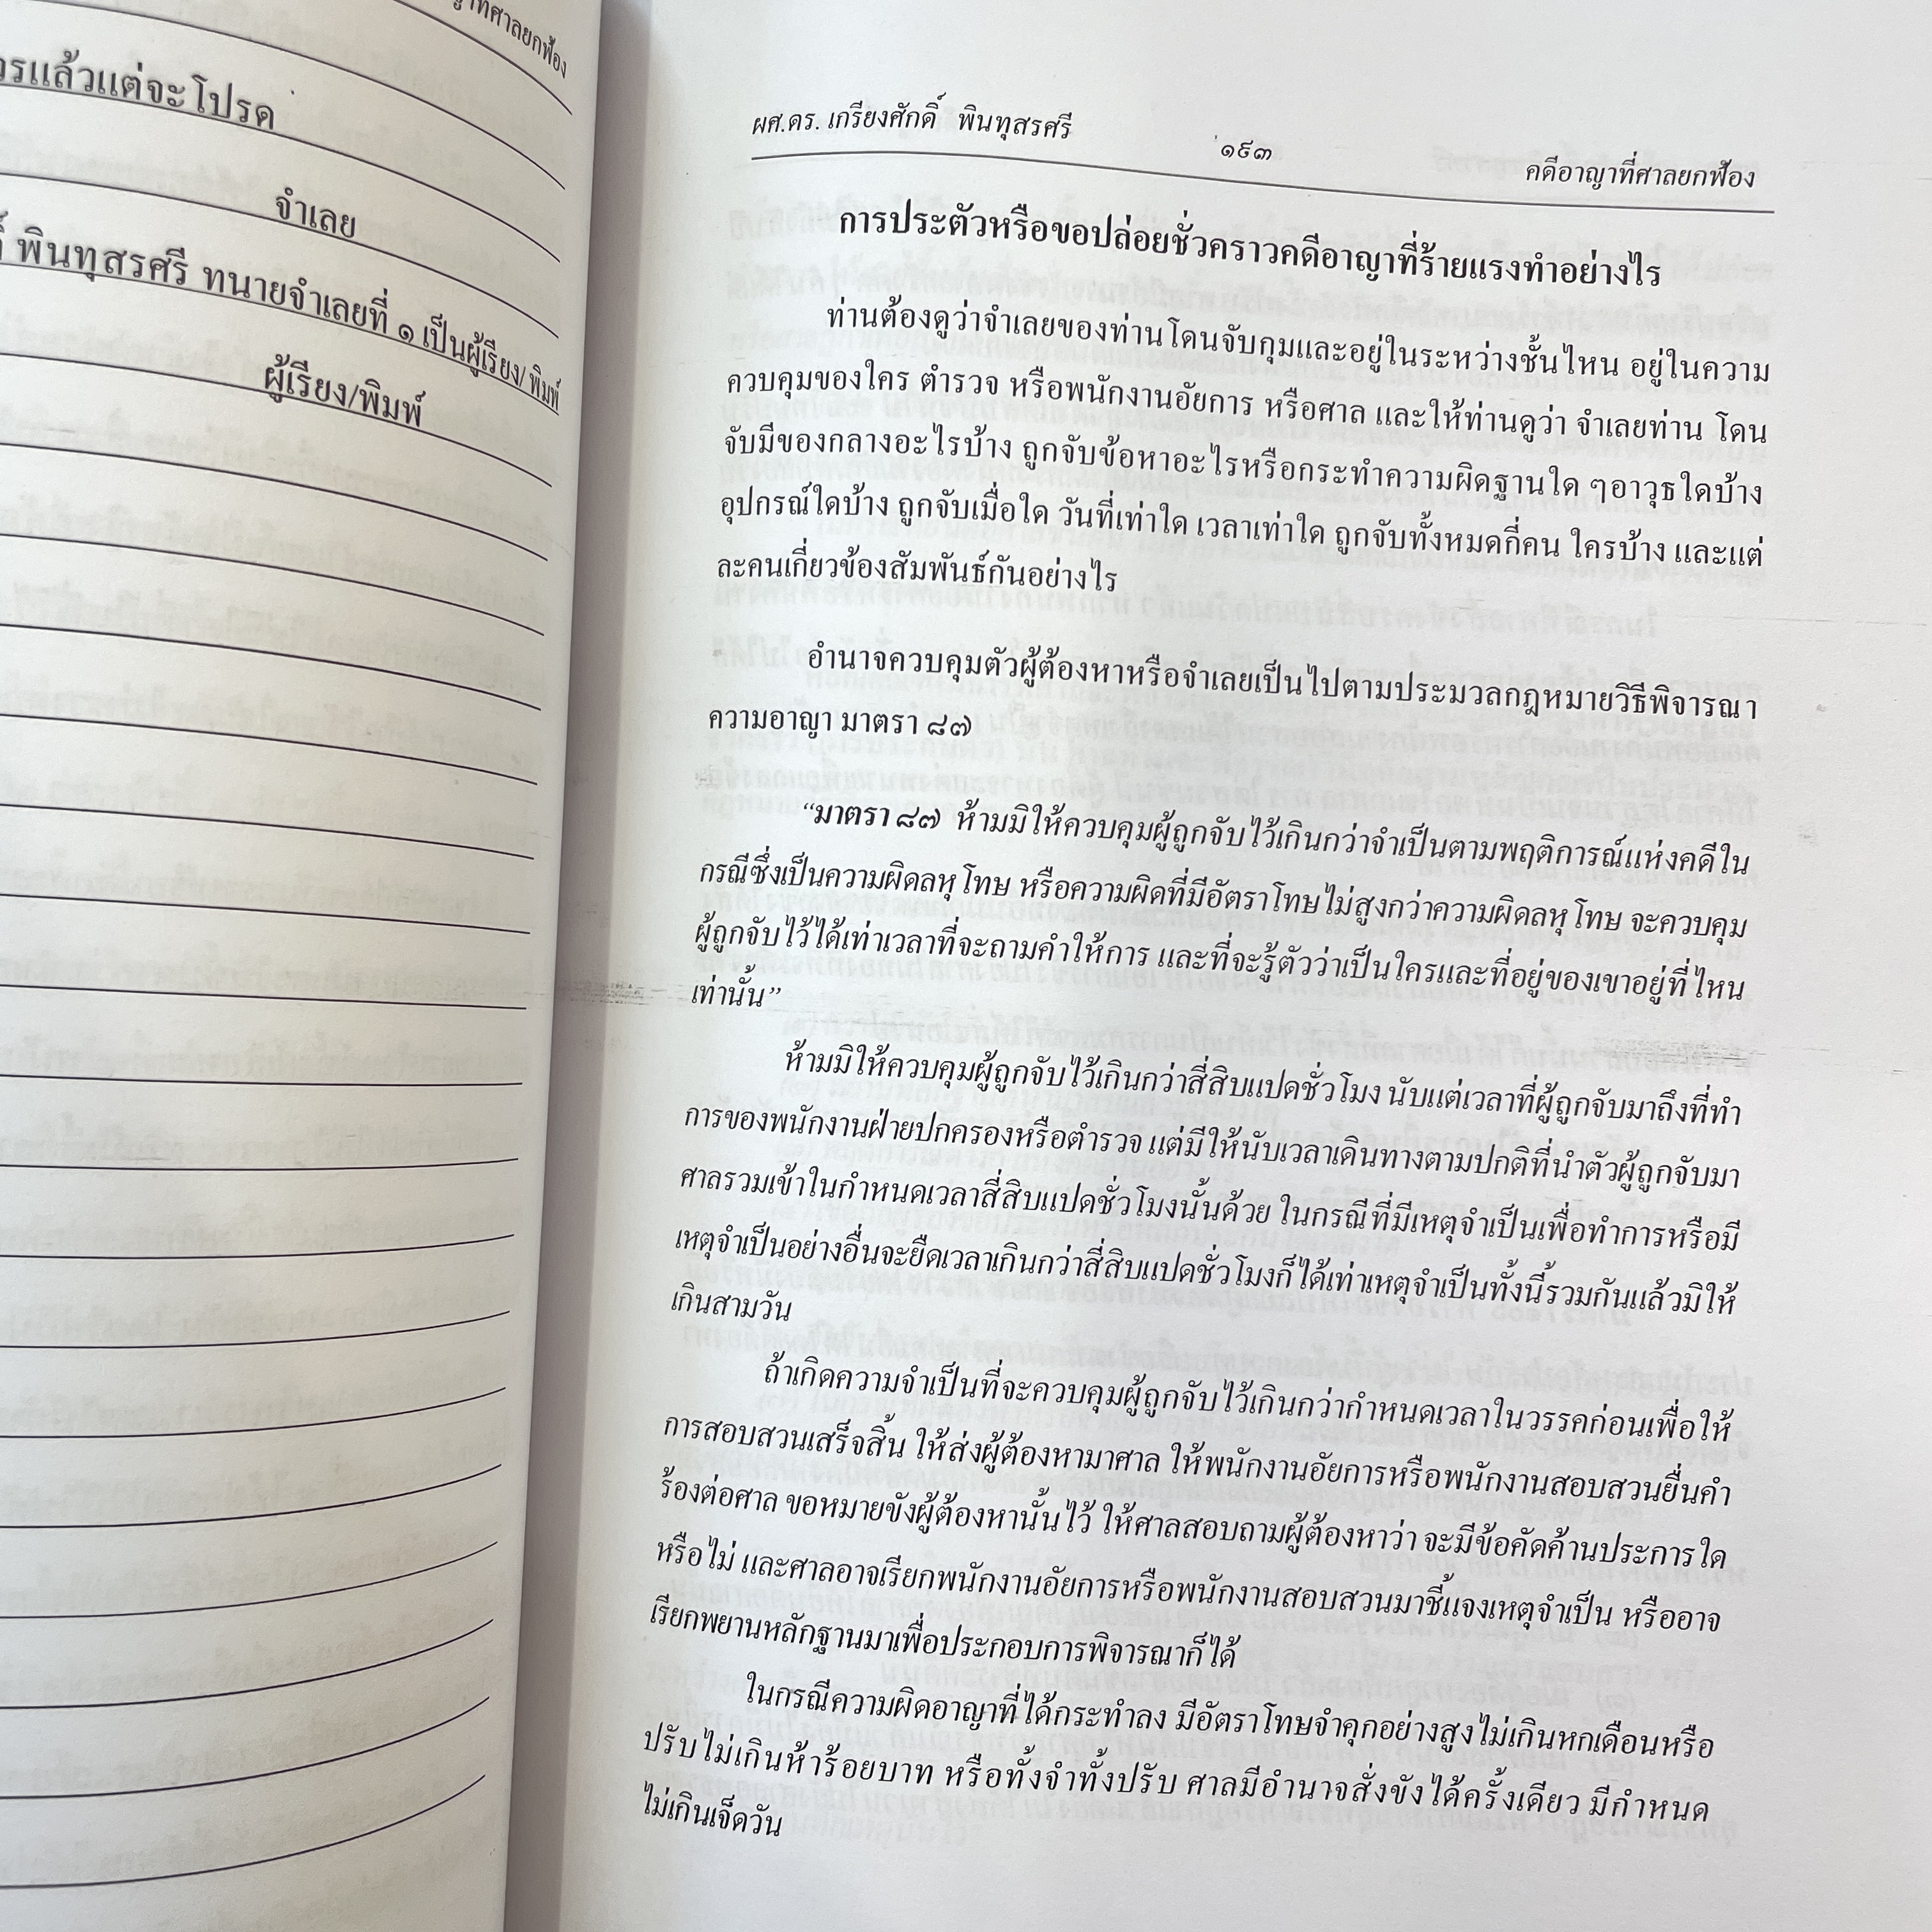 ญาที่ศาลยกฟ้อง
แล้วแต่จะโปรด
จำเลย
พินทุสรศรี ทนายจำเลยที่ ๑ เป็นผู้เรียง/พิมพ์
ผู้เรียง/พิมพ์
ผศ.ดร. เกรียงศักดิ์ พินทุสรศรี
๑๙๓
คดีอาญาที่ศาลยกฟ้อง
การประตัวหรือขอปล่อยชั่วคราวคดีอาญาที่ร้ายแรงทำอย่างไร
ท่านต้องดูว่าจำเลยของท่านโดนจับกุมและอยู่ในระหว่างชั้นไหน อยู่ในความ
ควบคุมของใคร ตำรวจ หรือพนักงานอัยการ หรือศาล และให้ท่านดูว่า จำเลยท่าน โดน
จับมีของกลางอะไรบ้าง ถูกจับข้อหาอะไรหรือกระทำความผิดฐานใด ๆอาวุธใดบ้าง
อุปกรณ์ใดบ้าง ถูกจับเมื่อใด วันที่เท่าใด เวลาเท่าใด ถูกจับทั้งหมดกี่คน ใครบ้าง และแต่
ละคนเกี่ยวข้องสัมพันธ์กันอย่างไร
อำนาจควบคุมตัวผู้ต้องหาหรือจำเลยเป็นไปตามประมวลกฎหมายวิธีพิจารณา
ความอาญา มาตรา ๘๗
“มาตรา ๘๗ ห้ามมิให้ควบคุมผู้ถูกจับไว้เกินกว่าจำเป็นตามพฤติการณ์แห่งคดีใน
กรณีซึ่งเป็นความผิดลหุโทษ หรือความผิดที่มีอัตราโทษไม่สูงกว่าความผิดลหุโทษ จะควบคุม
ผู้ถูกจับไว้ได้เท่าเวลาที่จะถามคำให้การ และที่จะรู้ตัวว่าเป็นใครและที่อยู่ของเขาอยู่ที่ไหน
เท่านั้น”
ห้ามมิให้ควบคุมผู้ถูกจับไว้เกินกว่าสี่สิบแปดชั่วโมง นับแต่เวลาที่ผู้ถูกจับมาถึงที่ทำ
การของพนักงานฝ่ายปกครองหรือตำรวจ แต่มีให้นับเวลาเดินทางตามปกติที่นำตัวผู้ถูกจับมา
ศาลรวมเข้าในกำหนดเวลาสี่สิบแปดชั่วโมงนั้นด้วย ในกรณีที่มีเหตุจำเป็นเพื่อทำการหรือมี
เหตุจำเป็นอย่างอื่นจะยืดเวลาเกินกว่าสี่สิบแปดชั่วโมงก็ได้เท่าเหตุจำเป็นทั้งนี้รวมกันแล้วมิให้
เกินสามวัน
ถ้าเกิดความจำเป็นที่จะควบคุมผู้ถูกจับไว้เกินกว่ากำหนดเวลาในวรรคก่อนเพื่อให้
การสอบสวนเสร็จสิ้น ให้ส่งผู้ต้องหามาศาล ให้พนักงานอัยการหรือพนักงานสอบสวนยื่นคำ
ร้องต่อศาล ขอหมายขังผู้ต้องหานั้นไว้ ให้ศาลสอบถามผู้ต้องหาว่า จะมีข้อคัดค้านประการใด
หรือไม่ และศาลอาจเรียกพนักงานอัยการหรือพนักงานสอบสวนมาชี้แจงเหตุจำเป็น หรืออาจ
เรียกพยานหลักฐานมาเพื่อประกอบการพิจารณาก็ได้
ในกรณีความผิดอาญาที่ได้กระทำลง มีอัตราโทษจำคุกอย่างสูงไม่เกินหกเดือนหรือ
ปรับไม่เกินห้าร้อยบาท หรือทั้งจำทั้งปรับ ศาลมีอำนาจสั่งขังได้ครั้งเดียว มีกำหนด
ไม่เกินเจ็ดวัน